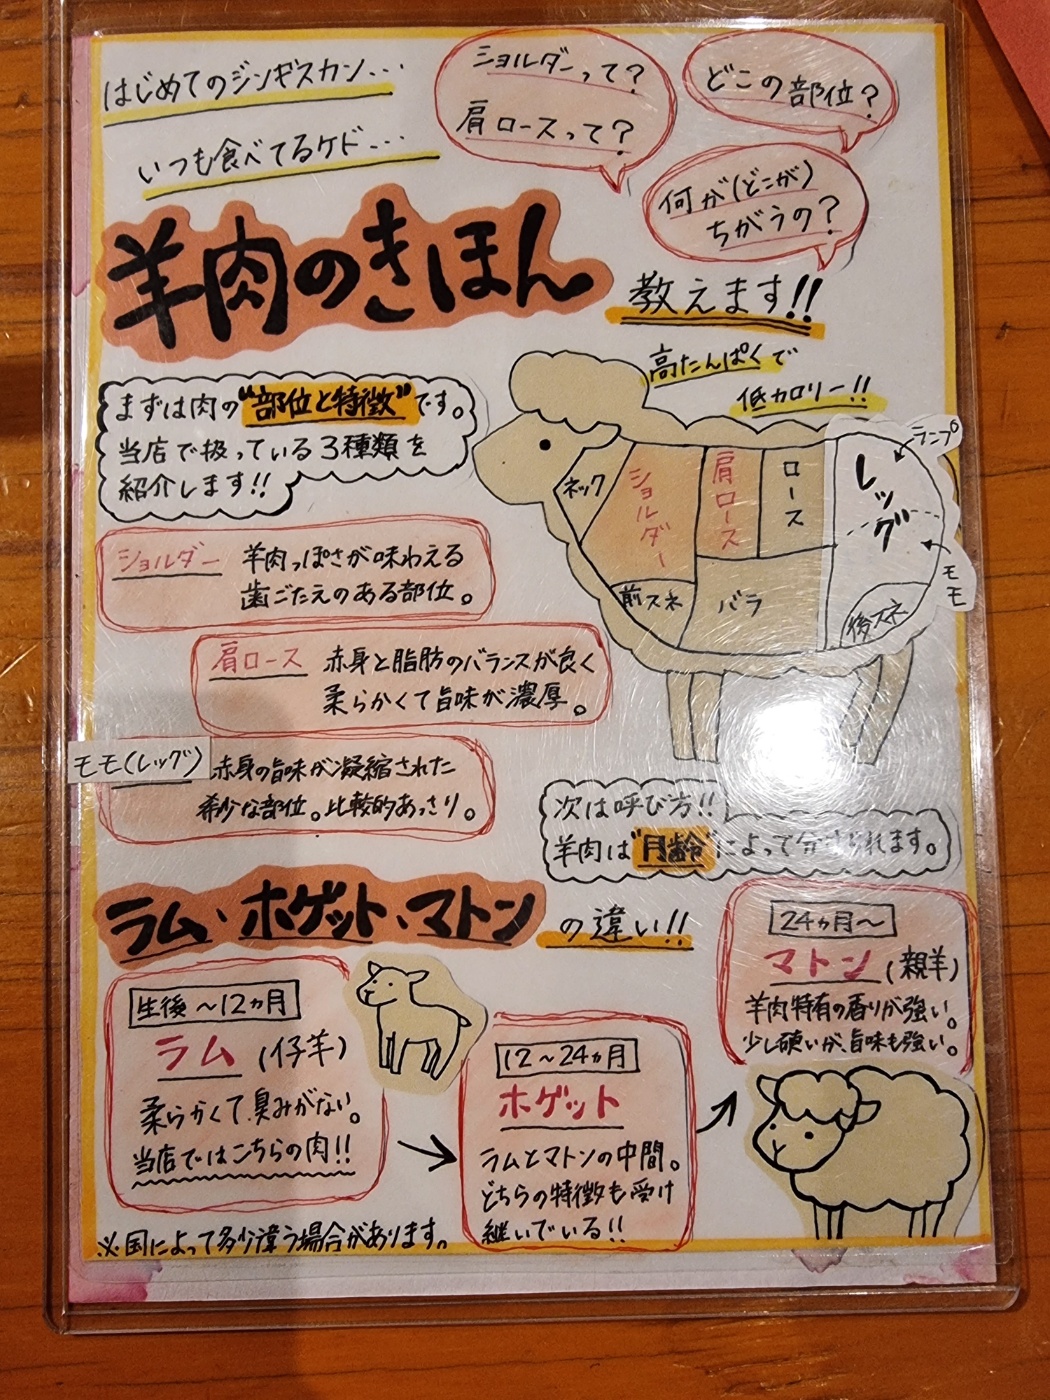 はじめてのジンギスカン...
いつも食べてるケド...
ショルダーって?
肩ロースって?
どこの部位?
何が(どこが)
ちがうの?
羊肉のきほん
教えます!!
高たんぱくで
低カロリー!!
まずは肉の"部位と特徴"です。
当店で扱っている3種類を
紹介します!!
ネック
ショルダー
肩ロース
ロース
レッグ
ランプ
モモ
前スネ
バラ
後スネ
ショルダー
羊肉っぽさが味わえる
歯ごたえのある部位。
肩ロース
赤身と脂肪のバランスが良く
柔らかくて旨味が濃厚。
モモ(レッグ)
赤身の旨味が凝縮された
希少な部位。比較的あっさり。
次は呼び方!!
羊肉は"月齢"によって分けられます。
ラム、ホゲット、マトンの違い!!
生後〜12ヵ月
ラム(仔羊)
柔らかくて臭みがない。
当店ではこちらの肉!!
12〜24ヵ月
ホゲット
ラムとマトンの中間。
どちらの特徴も受け
継いでいる!!
24ヵ月〜
マトン(親羊)
羊肉特有の香りが強い。
少し硬いが、旨味も強い。
※国によって多少違う場合があります。